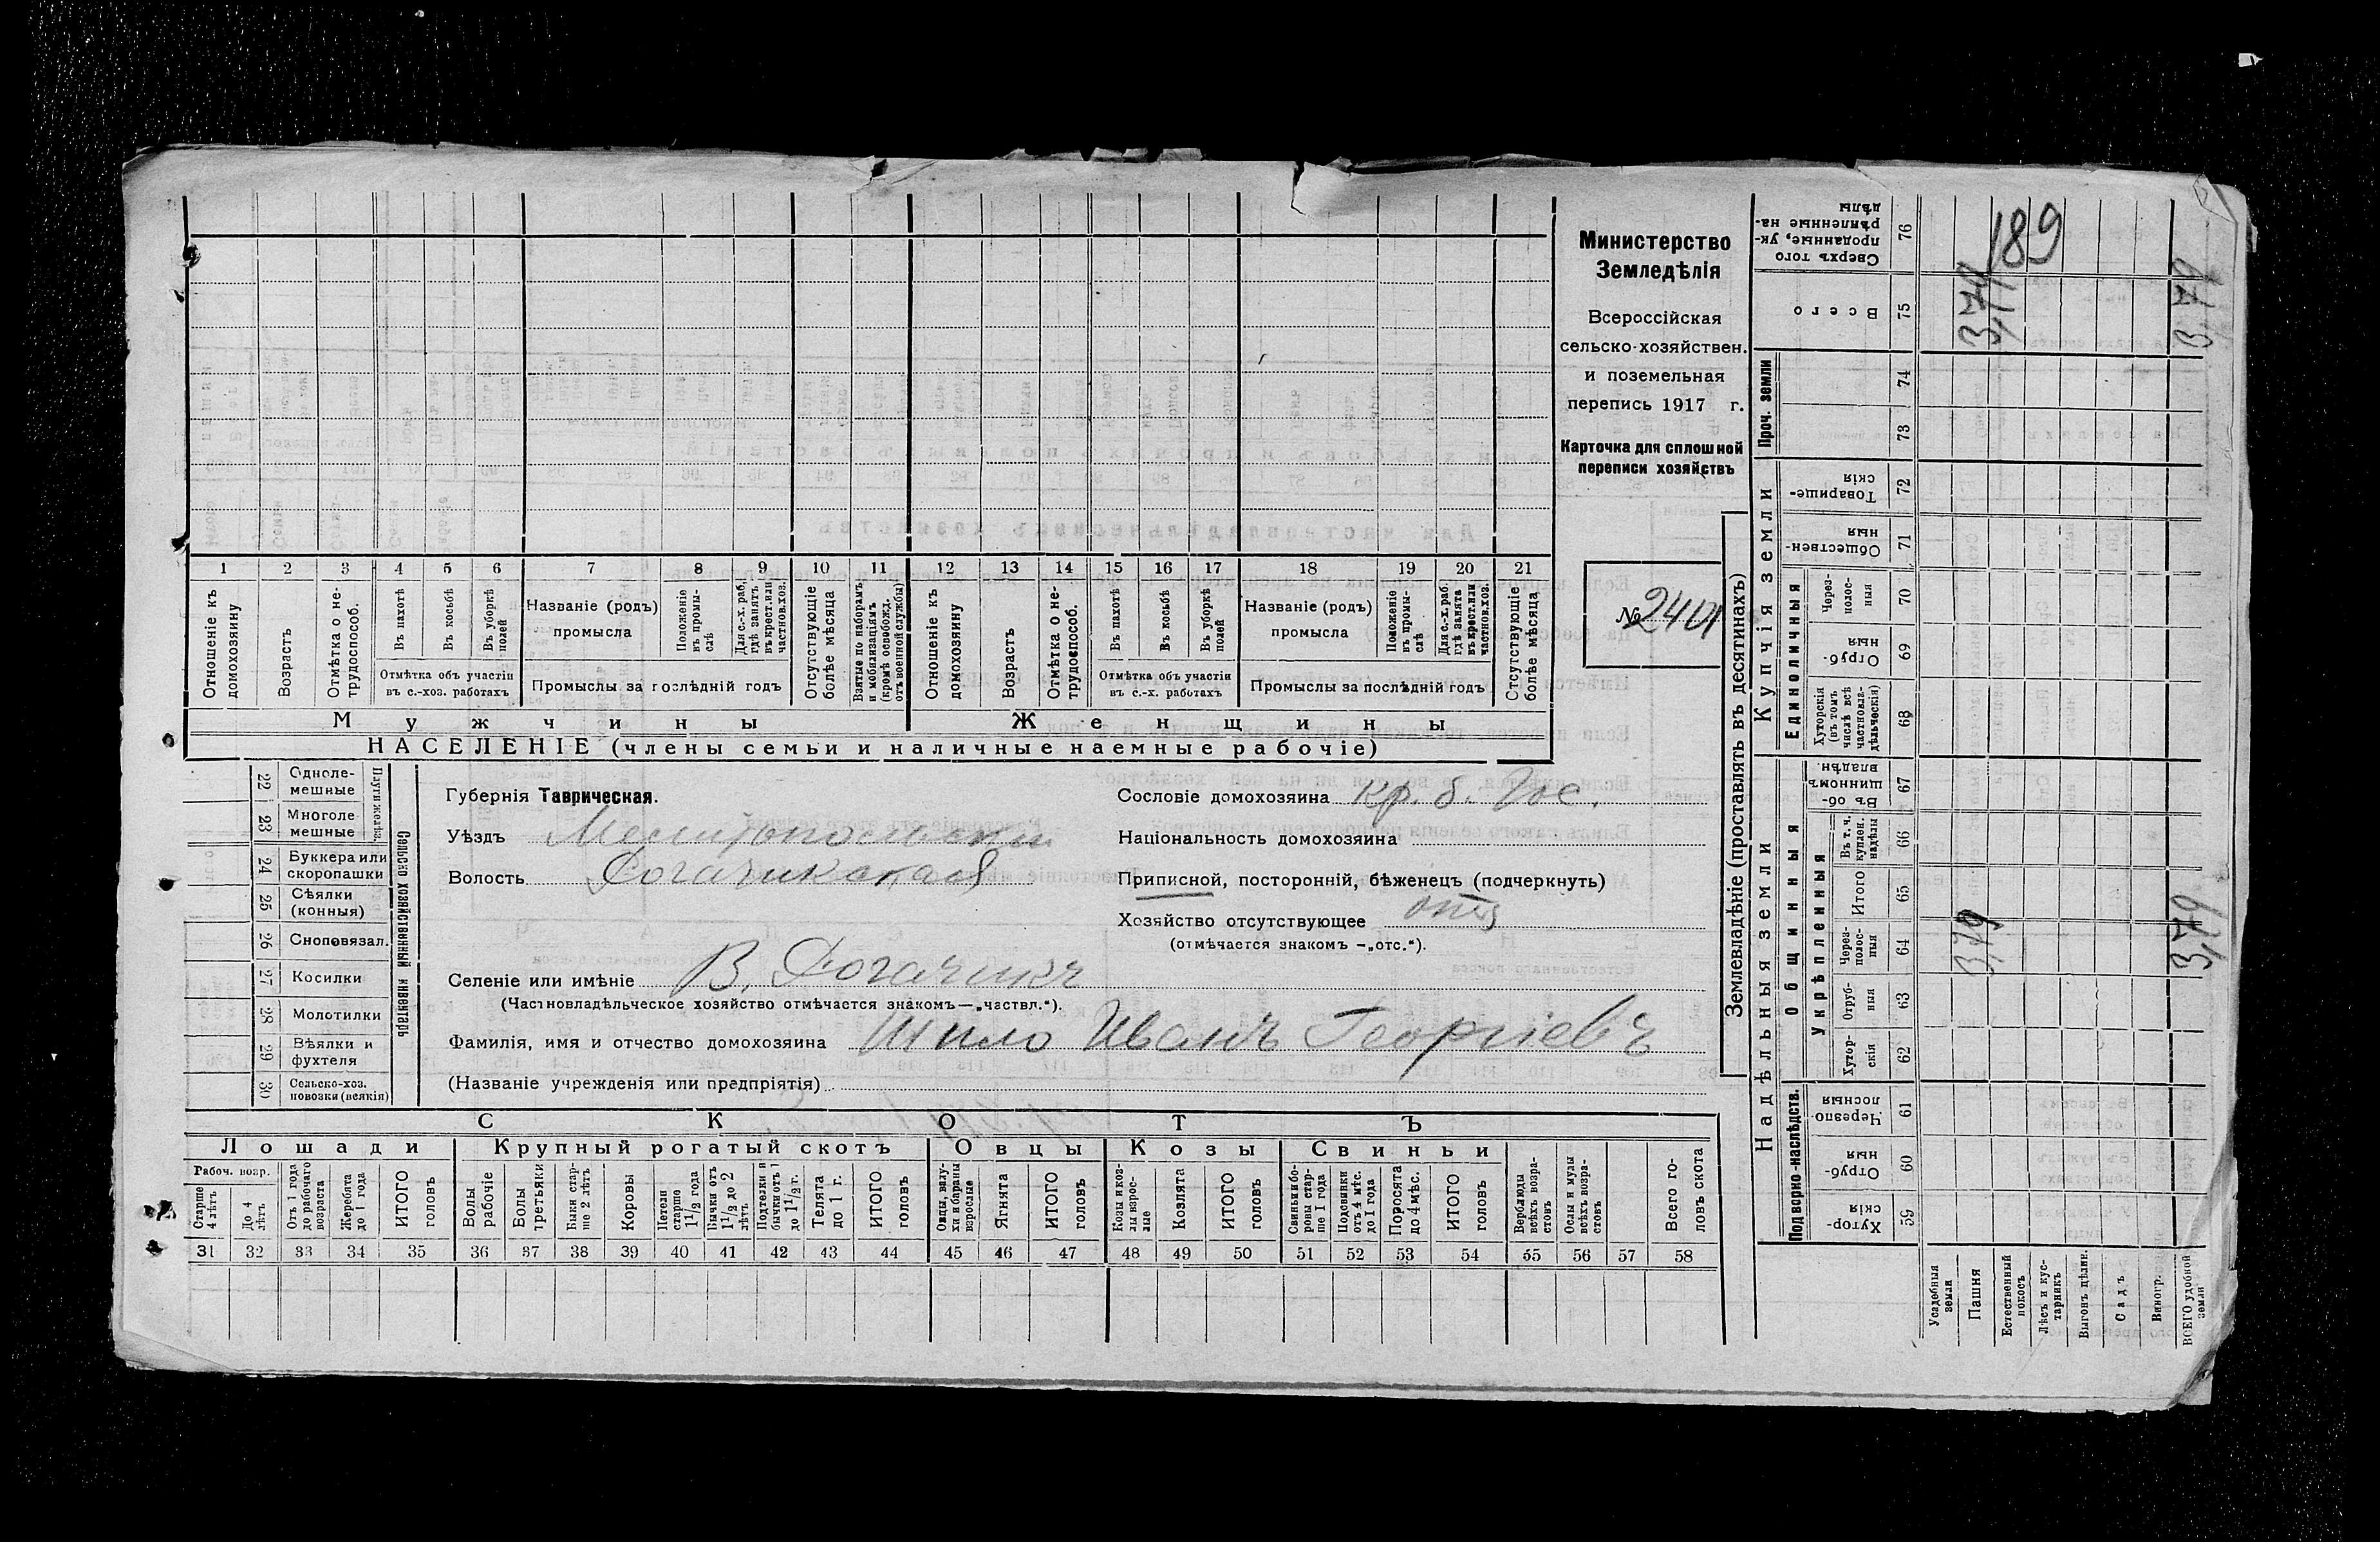 Министерство
Земледѣлія
Всероссійская
сельско-хозяйствен.
и поземельная
перепись 1917 г.
Карточка для сплошной
переписи хозяйствъ
№ 2401
1 2 3 4 5 6 7 8 9 10 11 12 13 14 15 16 17 18 19 20 21
Отношеніе къ домохозяину
Возрастъ
Отмѣтка о нетрудоспособ.
Въ пахотѣ
Въ косьбѣ
Въ уборкѣ полей
Отмѣтка объ участіи
въ с.-хоз. работахъ
Названіе (родъ)
промысла
Положеніе въ промыслѣ
Для с.-х. раб. гдѣ занятъ въ крест. или частнов. хоз.
Промыслы за послѣдній годъ
Отсутствующіе болѣе мѣсяца
Взятые по наборамъ и мобилизаціямъ (кромѣ освобожд. отъ военной службы)
Отношеніе къ домохозяину
Возрастъ
Отмѣтка о нетрудоспособ.
Въ пахотѣ
Въ косьбѣ
Въ уборкѣ полей
Отмѣтка объ участіи
въ с.-х. работахъ
Названіе (родъ)
промысла
Положеніе въ промыслѣ
Для с.-х. раб. гдѣ занята въ крест. или частнов. хоз.
Промыслы за послѣдній годъ
Отсутствующіе болѣе мѣсяца
Мужчины Женщины
НАСЕЛЕНІЕ (члены семьи и наличные наемные рабочіе)
Сельско хозяйственный инвентарь
Плуги желѣз.
22 Однолемешные
23 Многолемешные
24 Буккера или скоропашки
25 Сѣялки (конныя)
26 Сноповязал.
27 Косилки
28 Молотилки
29 Вѣялки и фухтеля
30 Сельско-хоз. повозки (всякія)
Губернія Таврическая.
Уѣздъ Мелитопольскій
Волость Рогачикская
Сословіе домохозяина кр. б. Гос.
Національность домохозяина
Приписной, посторонній, бѣженецъ (подчеркнуть)
Хозяйство отсутствующее отс
(отмѣчается знакомъ —„отс.“).
Селеніе или имѣніе В. Рогачикъ
(Частновладѣльческое хозяйство отмѣчается знакомъ—„частвл.“).
Фамилія, имя и отчество домохозяина Шило Иванъ Георгіевъ
(Названіе учрежденія или предпріятія)
СКОТЪ
Лошади Крупный рогатый скотъ Овцы Козы Свиньи
Рабоч. возр.
Старше 4 лѣтъ
До 4 лѣтъ
Отъ 1 года до рабочаго возраста
Жеребята до 1 года
ИТОГО головъ
Волы рабочіе
Волы третьяки
Быки старше 2 лѣтъ
Коровы
Нетели старше 1 1/2 года
Бычки отъ 1 1/2 до 2 лѣтъ
Подтелки и бычки отъ 1 до 1 1/2 г.
Телята до 1 г.
ИТОГО головъ
Овцы, валухи и бараны взрослые
Ягнята
ИТОГО головъ
Козы и козлы взрослые
Козлята
ИТОГО головъ
Свиньи и боровы старше 1 года
Подсвинки отъ 4 мѣс. до 1 года
Поросята до 4 мѣс.
ИТОГО головъ
Верблюды всѣхъ возрастовъ
Ослы и мулы всѣхъ возрастовъ
Всего головъ скота
31 32 33 34 35 36 37 38 39 40 41 42 43 44 45 46 47 48 49 50 51 52 53 54 55 56 57 58
Землевладѣніе (проставлять въ десятинахъ)
Надѣльныя земли
Купчія земли
Проч. земли
Подворно-наслѣдств.
Общинныя
Укрѣпленныя
Единоличныя
59 Хуторскія
60 Отрубныя
61 Черезполосныя
62 Хуторскія
63 Отрубныя
64 Черезполосныя
65 Итого
66 Въ т. ч. куплен. надѣлы
67 Въ общинномъ владѣн.
68 Хуторскія (въ томъ числѣ всѣ частновладѣльческія)
69 Отрубныя
70 Черезполосныя
71 Общественныя
72 Товарищескія
73
74
75 Всего
76 Сверхъ того проданные, укрѣпленные надѣлы
Усадебныя земли
Пашня
Естественный покосъ
Лѣсъ и кустарникъ
Выгонъ цѣлин.
Садъ
Виногр.
ВСЕГО удобной земли
3,79
3,79
3,79
3,79
189